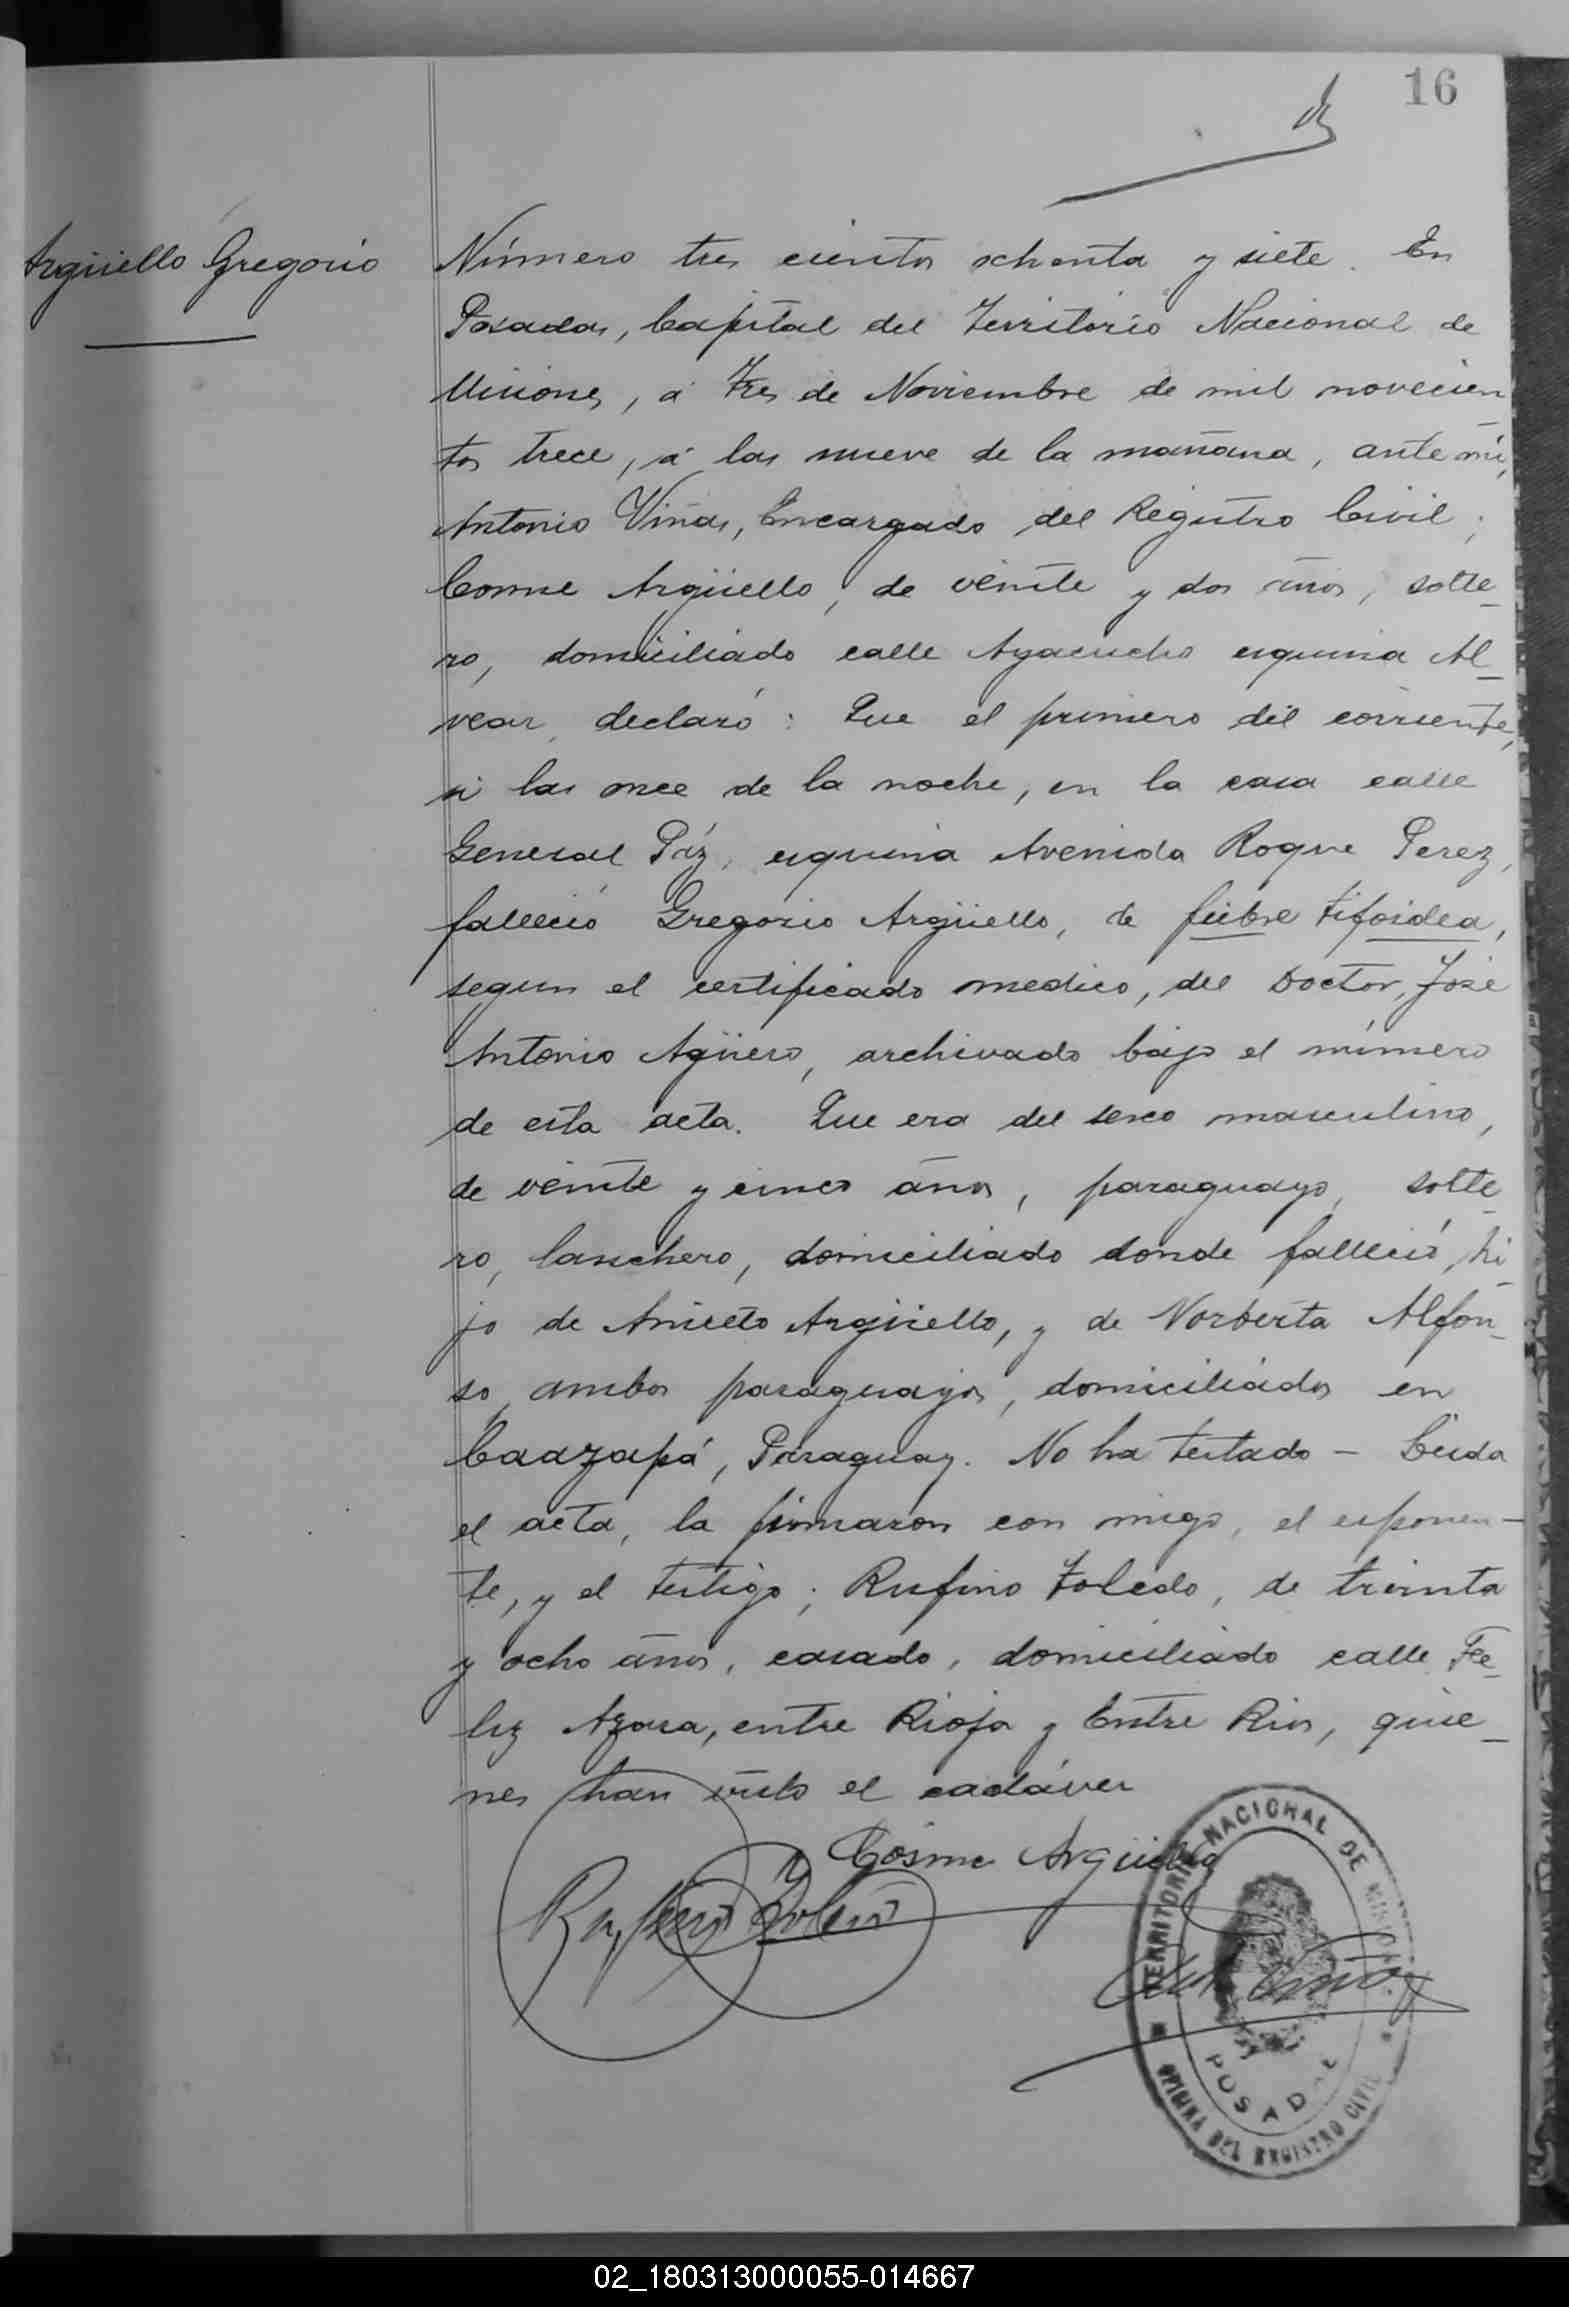 16
Argüello Gregorio
Número tres cientos ochenta y siete. En
Posadas, Capital del Territorio Nacional de
Misiones, á tres de Noviembre de mil novecien
tos trece, á las nueve de la mañana, ante mi,
Antonio Viñas, Encargado del Registro Civil;
Cosme Argüello, de veinte y dos años, solte-
ro, domiciliado calle Ayacucho esquina Al-
vear, declaró: Que el primero del corriente,
á las once de la noche, en la casa calle
General Páz, esquina Avenida Roque Perez,
falleció Gregorio Argüello, de fiebre tifoidea,
segun el certificado medico, del Doctor, José
Antonio Agüero, archivado bajo el número
de esta acta. Que era del sexo masculino,
de veinte y cinco años, paraguayo, solte-
ro, lanchero, domiciliado donde falleció, hi-
jo de Aniceto Argüello, y de Norberta Alfon-
so, ambos paraguayos, domiciliados en
Caazapá, Paraguay. No ha testado - Leida
el acta, la firmaron con migo, el esponen-
te, y el testigo; Rufino Toledo, de treinta
y ocho años, casado, domiciliado calle Fe-
liz Azara, entre Rioja y Entre Rios, quie-
nes han visto el cadáver
Cosme Argüello
Rufino Toledo
Ant Viñas
TERRITORIO NACIONAL DE MISIONES
POSADAS
OFICINA DEL REGISTRO CIVIL
02_180313000055-014667